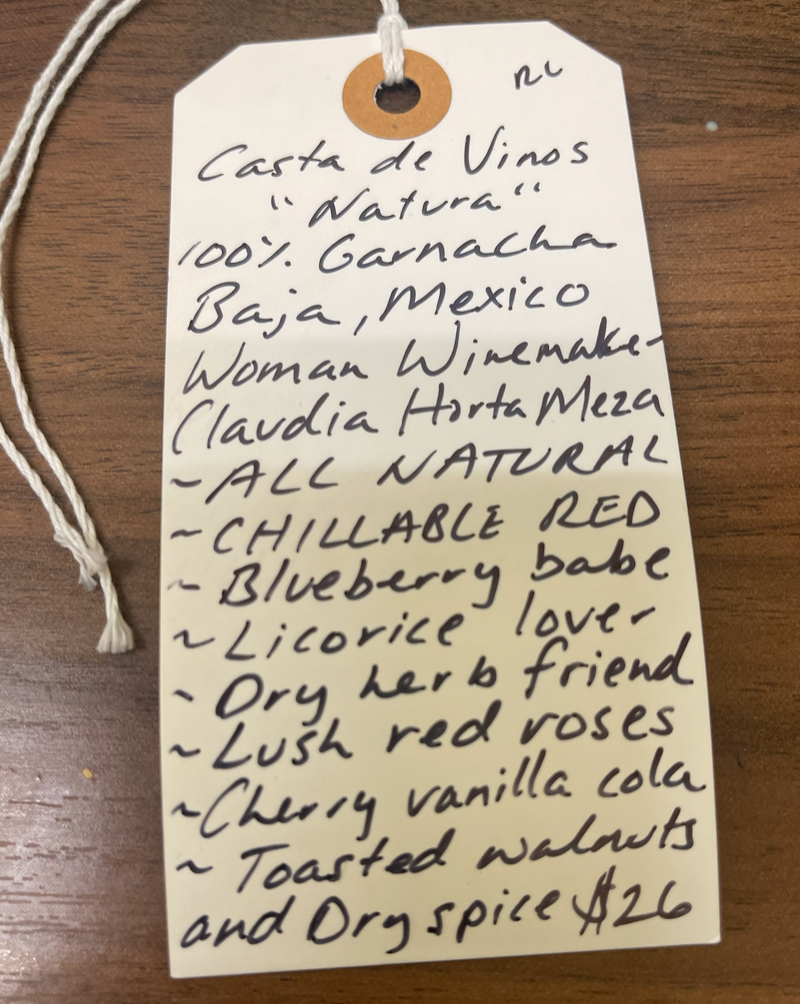 RL
Casta de Vinos
"Natura"
100% Garnacha
Baja, Mexico
Woman Winemaker
Claudia Horta Meza
~ ALL NATURAL
~ CHILLABLE RED
~ Blueberry babe
~ Licorice lover
~ Dry herb friend
~ Lush red roses
~ Cherry vanilla cola
~ Toasted walnuts
and Dry spice $26